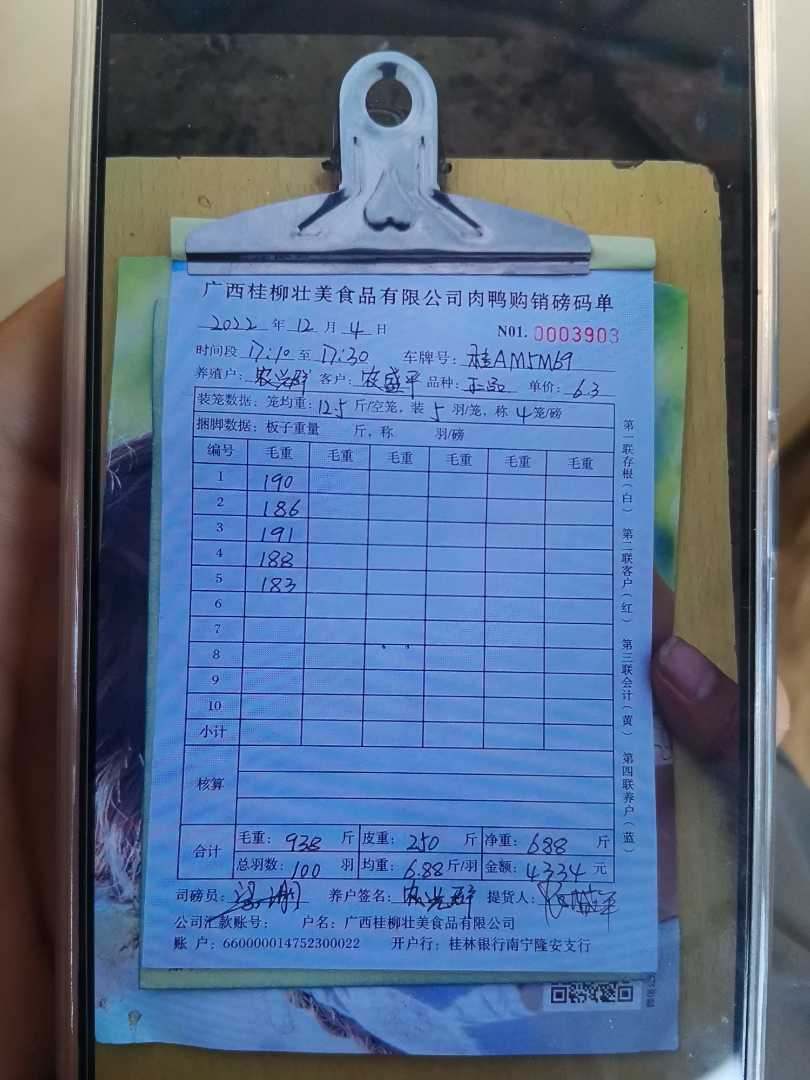 广西桂柳壮美食品有限公司肉鸭购销磅码单
2022 年 12 月 4 日 N01. 0003903
时间段 17:10 至 17:30 车牌号: 桂AM5M69
养殖户: 农兴群 客户: 农盛平 品种: 正品 单价: 6.3
装笼数据: 笼均重: 12.5 斤/空笼, 装 5 羽/笼, 称 4 笼/磅
捆脚数据: 板子重量 斤, 称 羽/磅
编号 毛重 毛重 毛重 毛重 毛重 毛重
1 190
2 186
3 191
4 188
5 183
6
7
8
9
10
小计
核算
合计 毛重: 938 斤 皮重: 250 斤 净重: 688 斤
总羽数: 100 羽 均重: 6.88 斤/羽 金额: 4334 元
司磅员: 养户签名: 农兴群 提货人:
公司汇款账号: 户名: 广西桂柳壮美食品有限公司
账 户: 660000014752300022 开户行: 桂林银行南宁隆安支行
第一联存根(白) 第二联客户(红) 第三联会计(黄) 第四联养户(蓝)